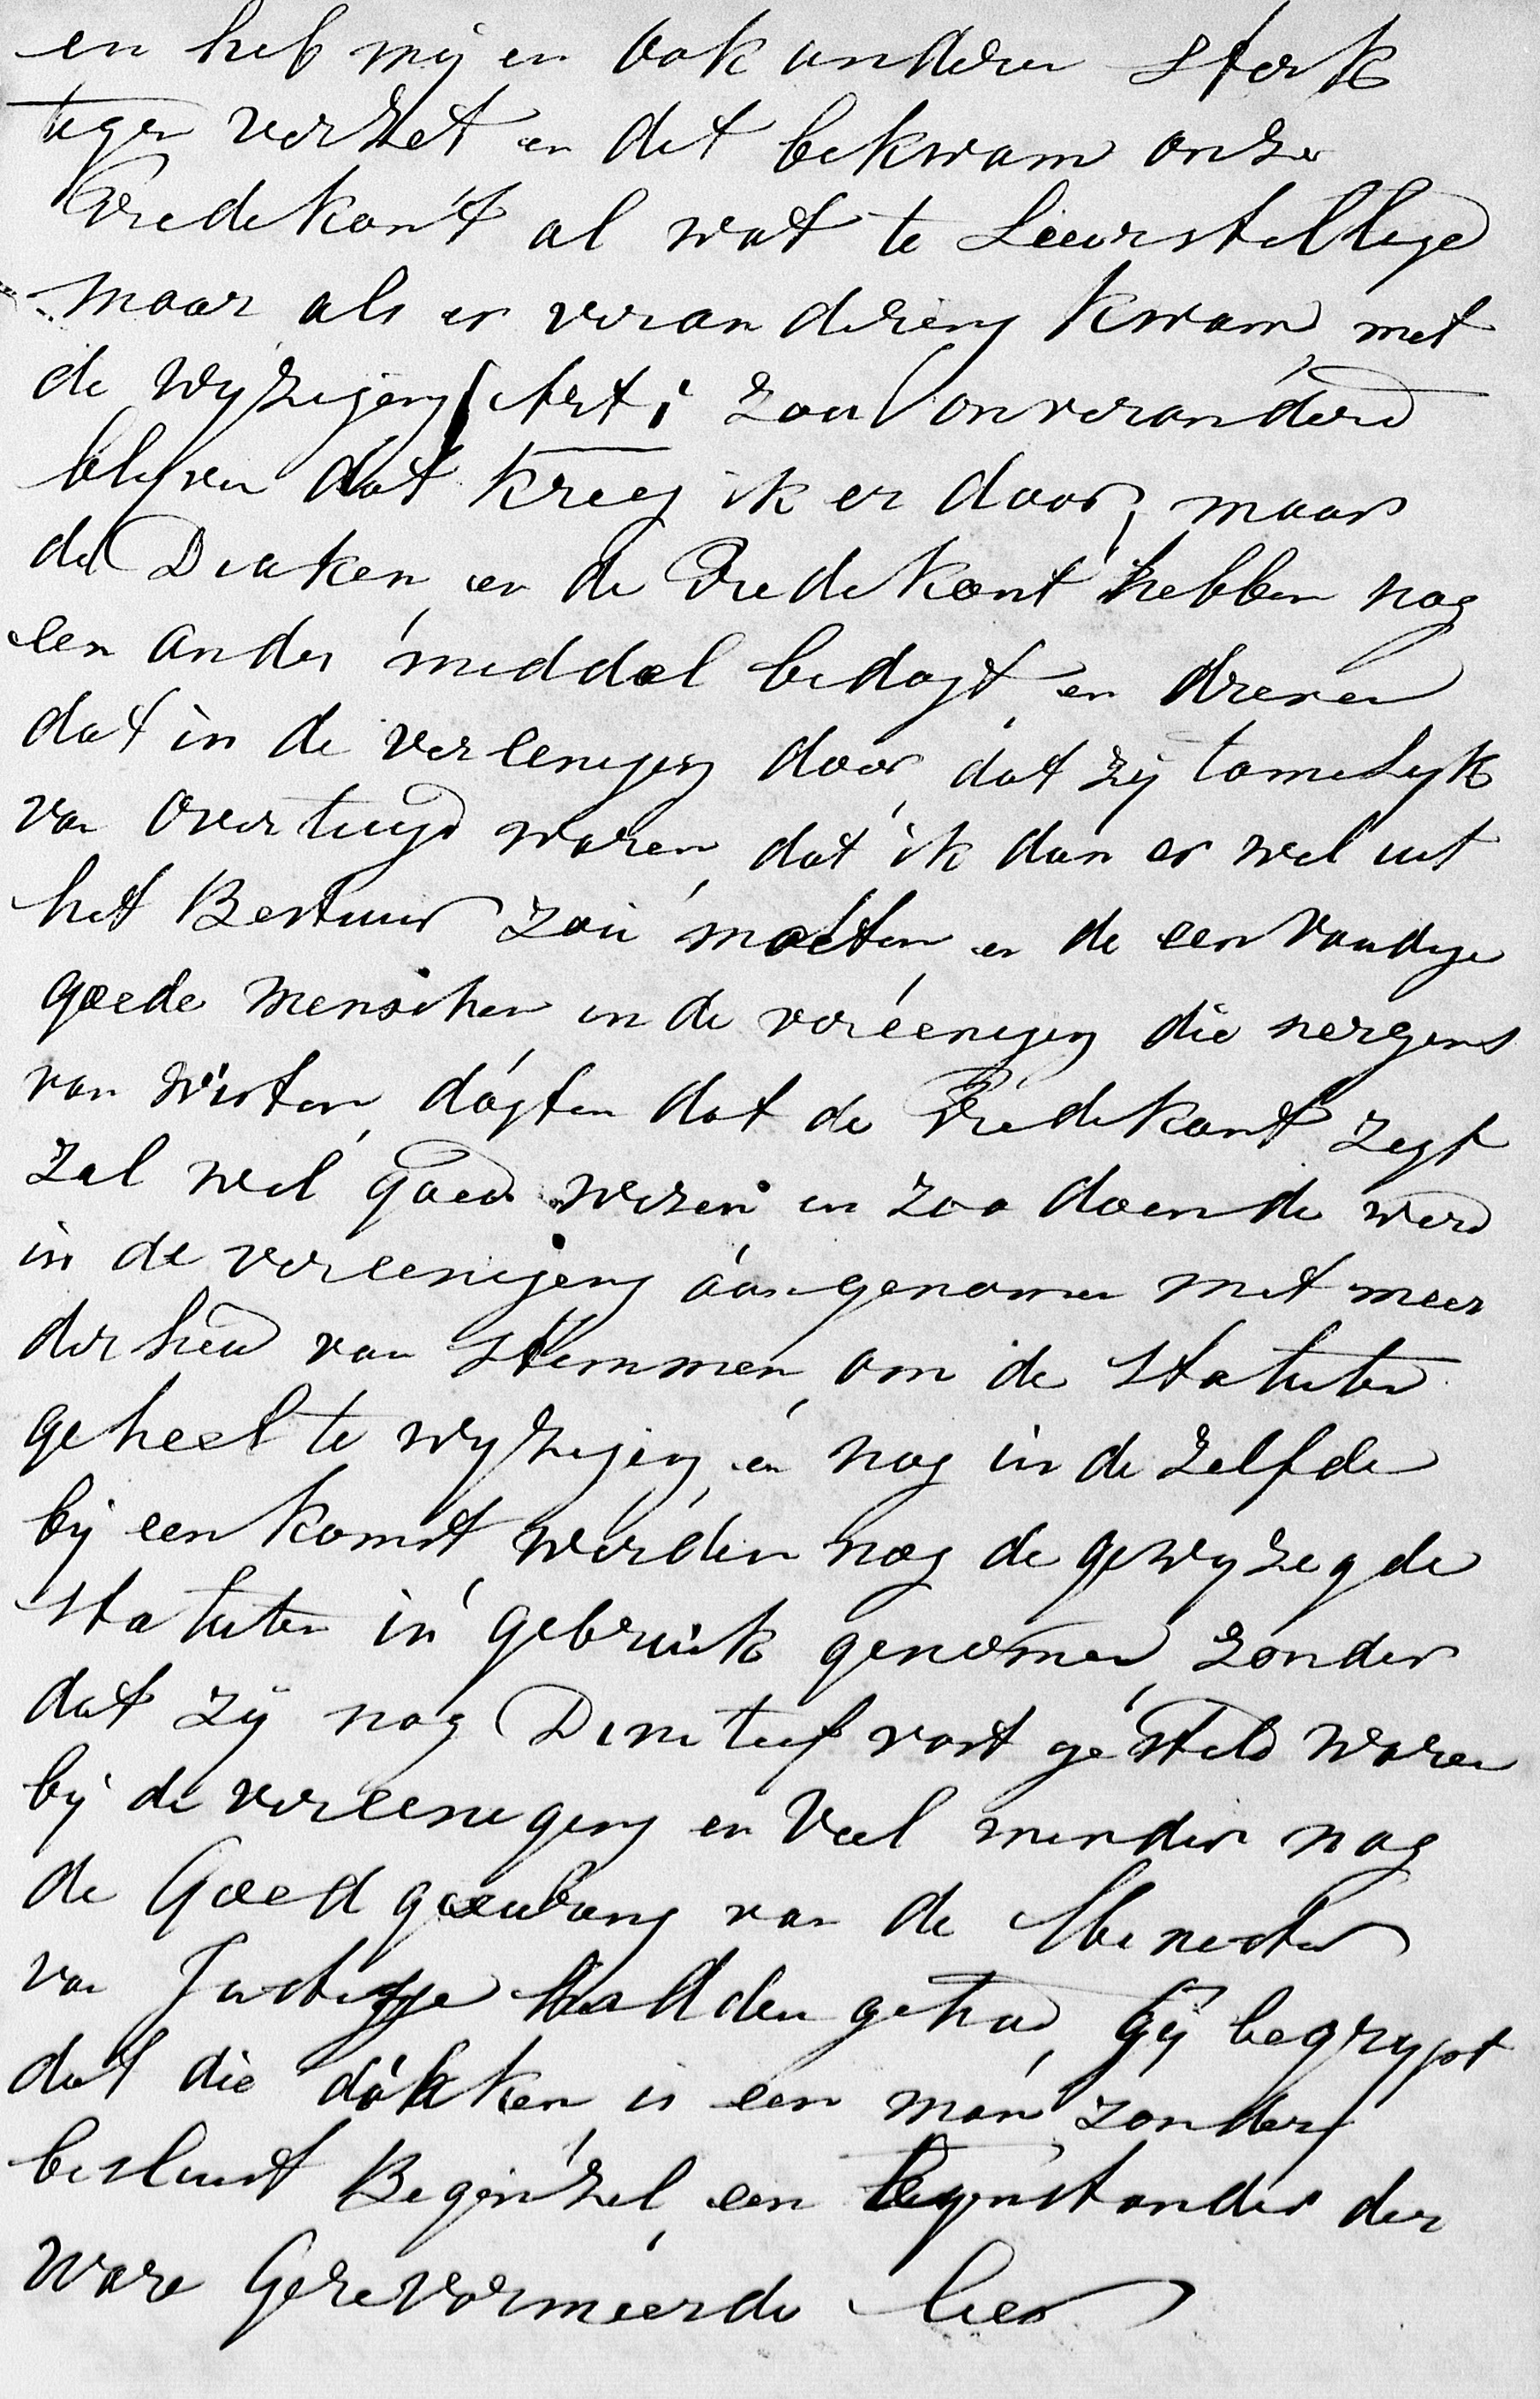 en heb mij en ook anderen sterk
tegen verzet en dit bekwam onze
Predekant al wat te Leeurstellige
maar als er verandereng kwam met
de wyzegeng Art 1 zou onveranderd
blyven dat kreeg ik er door, maar
de Diaken en de Predekant hebben nog
een ander middel bedagt en dreven
dat in de vereeneging door, dat zij tamelyk
van overtuigd waren dat ik dan er wel uit
het Bestuur zou moeten en de een voudige
goede menschen in de vereeneging die nergens
van wisten, dagten dat de Predekant zegt
zal wel goed wezen en zoo doende werd
in de vereeneging aangenomen met meer
derheid van stemmen om de statuten
geheel te wyzeging en nog in de zelfde
bij een komst werden nog de gewyzegde
statuten in gebruik genomen, zonder
dat zij nog Dinetief vast gesteld waren
bij de vereeneging en veel minder nog
de Goedgeeuring van de Menester
van Justisje hadden gehad, Gij begrypt
dat die diakken is een man zonder
besluist Beginzel een tegenstander der
ware Gerevormeerde leer